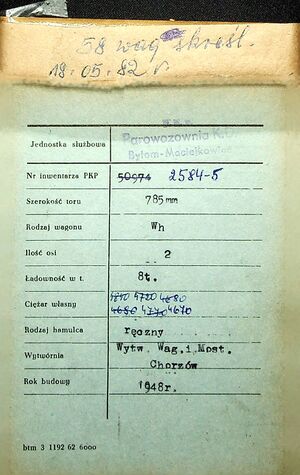 58 wag skreśl.
18.05.82 r.
Parowozownia K.D.
Jednostka służbowa
Bytom-Maciejkowice
Nr inwentarza PKP 50974 2584-5
Szerokość toru 785 mm
Rodzaj wagonu Wh
Ilość osi 2
Ładowność w t. 8t.
Ciężar własny 4720 4680
4680 4670
Rodzaj hamulca ręczny
Wytw. Wag. i Most.
Wytwórnia Chorzów
Rok budowy 1948r.
btm 3 1192 62 6000